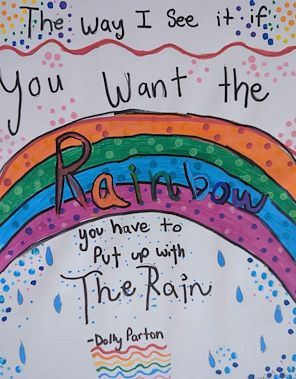 The way I see it if
You Want the
Rainbow
you have to
Put up with
The Rain
-Dolly Parton